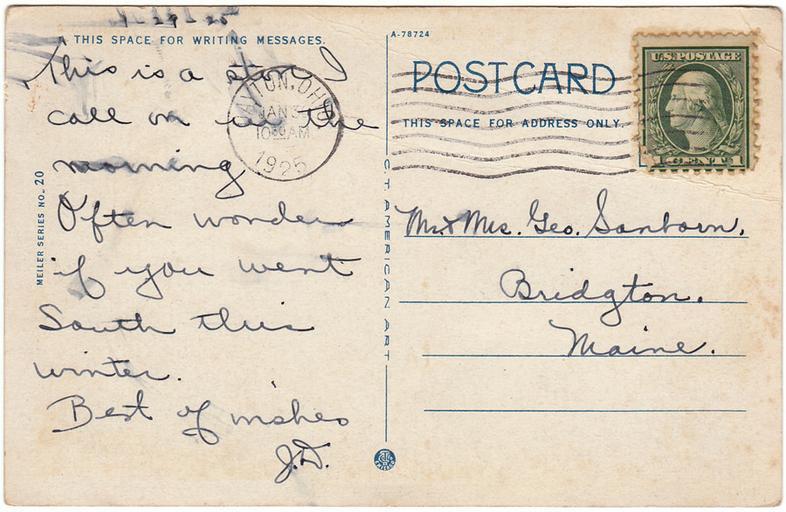 1 - 29 - 25
THIS SPACE FOR WRITING MESSAGES.
This is a store I
call on in the
morning
Often wonder
if you went
South this
winter.
Best of wishes
J.D.
MEILER SERIES NO. 20
YTON, OHIO
JAN
10 AM
1925
C.T. AMERICAN ART
A-78724
POST CARD
THIS SPACE FOR ADDRESS ONLY
U.S. POSTAGE
1 CENT 1
Mr & Mrs. Geo. Sanborn.
Bridgton.
Maine.